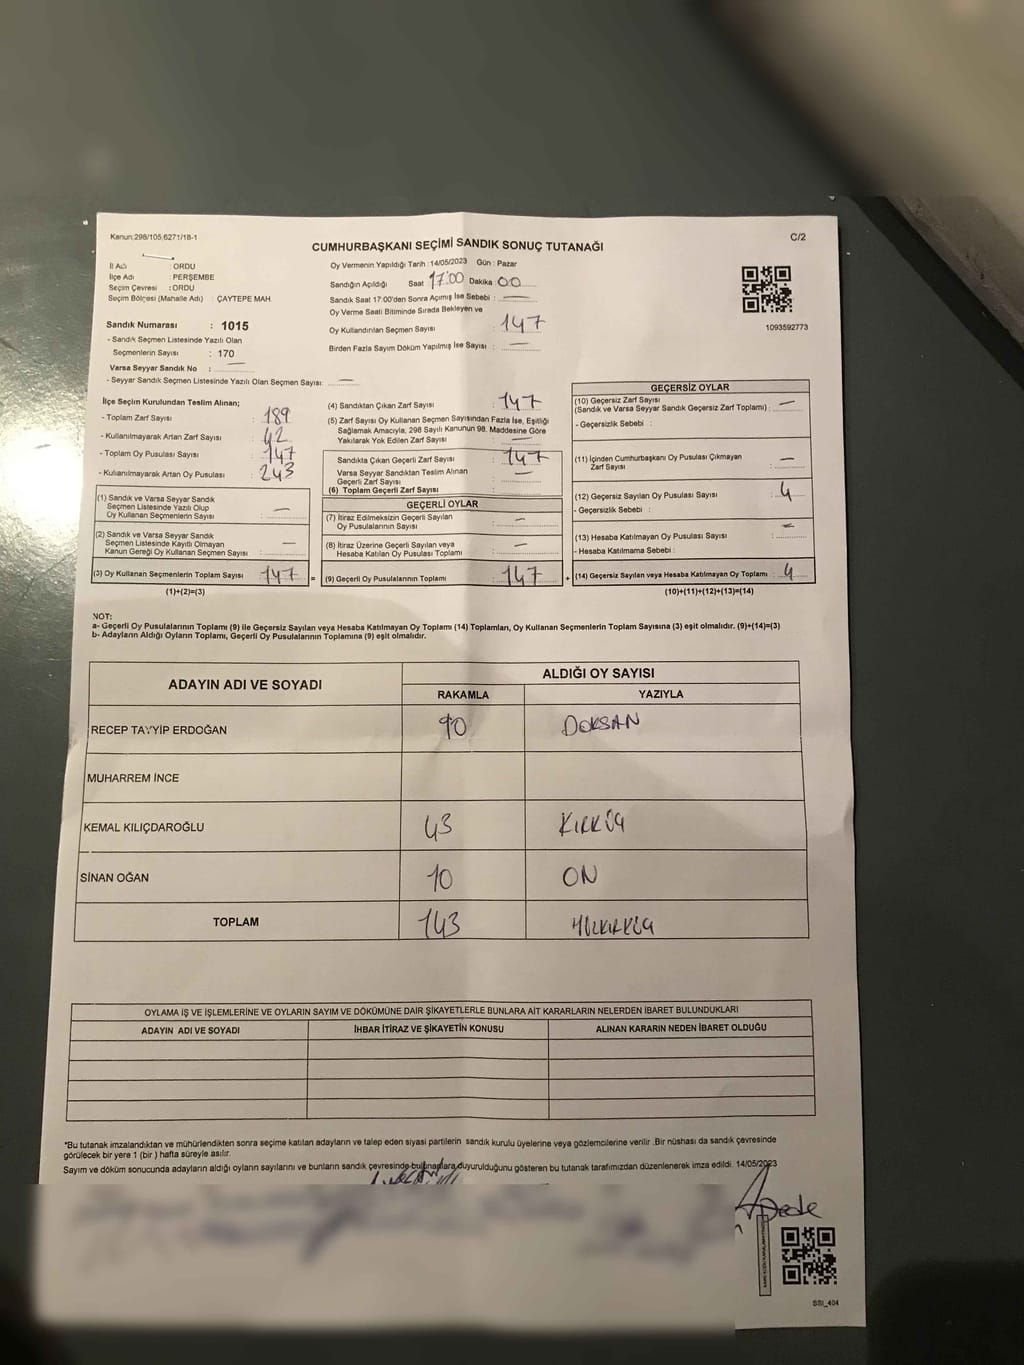 Kanun:298/105,6271/18-1
C/2
CUMHURBAŞKANI SEÇİMİ SANDIK SONUÇ TUTANAĞI
İl Adı : ORDU
İlçe Adı : PERŞEMBE
Seçim Çevresi : ORDU
Seçim Bölgesi (Mahalle Adı) : ÇAYTEPE MAH.
Sandık Numarası : 1015
- Sandık Seçmen Listesinde Yazılı Olan
Seçmenlerin Sayısı : 170
Varsa Seyyar Sandık No : —
- Seyyar Sandık Seçmen Listesinde Yazılı Olan Seçmen Sayısı: —
Oy Vermenin Yapıldığı Tarih :14/05/2023 Gün : Pazar
Sandığın Açıldığı Saat 17:00 Dakika 00
Sandık Saat 17:00'den Sonra Açılmış İse Sebebi : —
Oy Verme Saati Bitiminde Sırada Bekleyen ve
Oy Kullandırılan Seçmen Sayısı : 147
Birden Fazla Sayım Döküm Yapılmış İse Sayısı : —
1093592773
İlçe Seçim Kurulundan Teslim Alınan;
- Toplam Zarf Sayısı : 189
- Kullanılmayarak Artan Zarf Sayısı : 42
- Toplam Oy Pusulası Sayısı : 147
- Kullanılmayarak Artan Oy Pusulası : 243
(1) Sandık ve Varsa Seyyar Sandık
Seçmen Listesinde Yazılı Olup
Oy Kullanan Seçmenlerin Sayısı : —
(2) Sandık ve Varsa Seyyar Sandık
Seçmen Listesinde Kayıtlı Olmayan
Kanun Gereği Oy Kullanan Seçmen Sayısı : —
(3) Oy Kullanan Seçmenlerin Toplam Sayısı : 147
(1)+(2)=(3)
(4) Sandıktan Çıkan Zarf Sayısı : 147
(5) Zarf Sayısı Oy Kullanan Seçmen Sayısından Fazla İse, Eşitliği
Sağlamak Amacıyla, 298 Sayılı Kanunun 98. Maddesine Göre
Yakılarak Yok Edilen Zarf Sayısı : —
Sandıkta Çıkan Geçerli Zarf Sayısı : 147
Varsa Seyyar Sandıktan Teslim Alınan
Geçerli Zarf Sayısı : —
(6) Toplam Geçerli Zarf Sayısı :
GEÇERLİ OYLAR
(7) İtiraz Edilmeksizin Geçerli Sayılan
Oy Pusulalarının Sayısı : —
(8) İtiraz Üzerine Geçerli Sayılan veya
Hesaba Katılan Oy Pusulası Toplamı : —
= (9) Geçerli Oy Pusulalarının Toplamı : 147
GEÇERSİZ OYLAR
(10) Geçersiz Zarf Sayısı
(Sandık ve Varsa Seyyar Sandık Geçersiz Zarf Toplamı) : —
- Geçersizlik Sebebi :
(11) İçinden Cumhurbaşkanı Oy Pusulası Çıkmayan
Zarf Sayısı : —
(12) Geçersiz Sayılan Oy Pusulası Sayısı : 4
- Geçersizlik Sebebi :
(13) Hesaba Katılmayan Oy Pusulası Sayısı : —
- Hesaba Katılmama Sebebi :
+ (14) Geçersiz Sayılan veya Hesaba Katılmayan Oy Toplamı : 4
(10)+(11)+(12)+(13)=(14)
NOT:
a- Geçerli Oy Pusulalarının Toplamı (9) ile Geçersiz Sayılan veya Hesaba Katılmayan Oy Toplamı (14) Toplamları, Oy Kullanan Seçmenlerin Toplam Sayısına (3) eşit olmalıdır. (9)+(14)=(3)
b- Adayların Aldığı Oyların Toplamı, Geçerli Oy Pusulalarının Toplamına (9) eşit olmalıdır.
ADAYIN ADI VE SOYADI ALDIĞI OY SAYISI
RAKAMLA YAZIYLA
RECEP TAYYİP ERDOĞAN 90 DOKSAN
MUHARREM İNCE
KEMAL KILIÇDAROĞLU 43 KIRKÜÇ
SİNAN OĞAN 10 ON
TOPLAM 143 YÜZKIRKÜÇ
OYLAMA İŞ VE İŞLEMLERİNE VE OYLARIN SAYIM VE DÖKÜMÜNE DAİR ŞİKAYETLERLE BUNLARA AİT KARARLARIN NELERDEN İBARET BULUNDUKLARI
ADAYIN ADI VE SOYADI İHBAR İTİRAZ VE ŞİKAYETİN KONUSU ALINAN KARARIN NEDEN İBARET OLDUĞU
*Bu tutanak imzalandıktan ve mühürlendikten sonra seçime katılan adayların ve talep eden siyasi partilerin sandık kurulu üyelerine veya gözlemcilerine verilir .Bir nüshası da sandık çevresinde
görülecek bir yere 1 (bir ) hafta süreyle asılır.
Sayım ve döküm sonucunda adayların aldığı oyların sayılarını ve bunların sandık çevresinde bulunanlara duyurulduğunu gösteren bu tutanak tarafımızdan düzenlenerek imza edildi. 14/05/2023
SSI_404